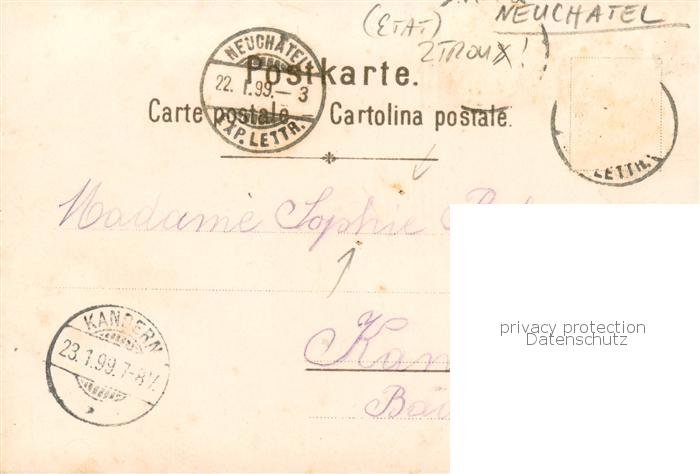 NEUCHATEL
(ETAT)
2 TROUX!
NEUCHATEL
22. I. 99. – 3
EXP. LETTR.
Postkarte.
Carte postale – Cartolina postale.
LETTR.
Madame Sophie
Kan
Bä
KANDERN
23. 1. 99. 7-8V.
privacy protection
Datenschutz